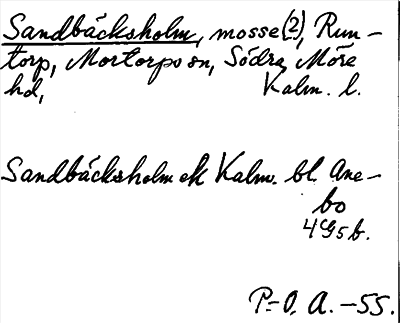 Sandbäcksholm, mosse (?), Run-
torp, Mortorps sn, Södra Möre
hd, Kalm. l.
Sandbäcksholm ek Kalm. bl. Ane-
bo
4G5b.
P.-O. A. -55.